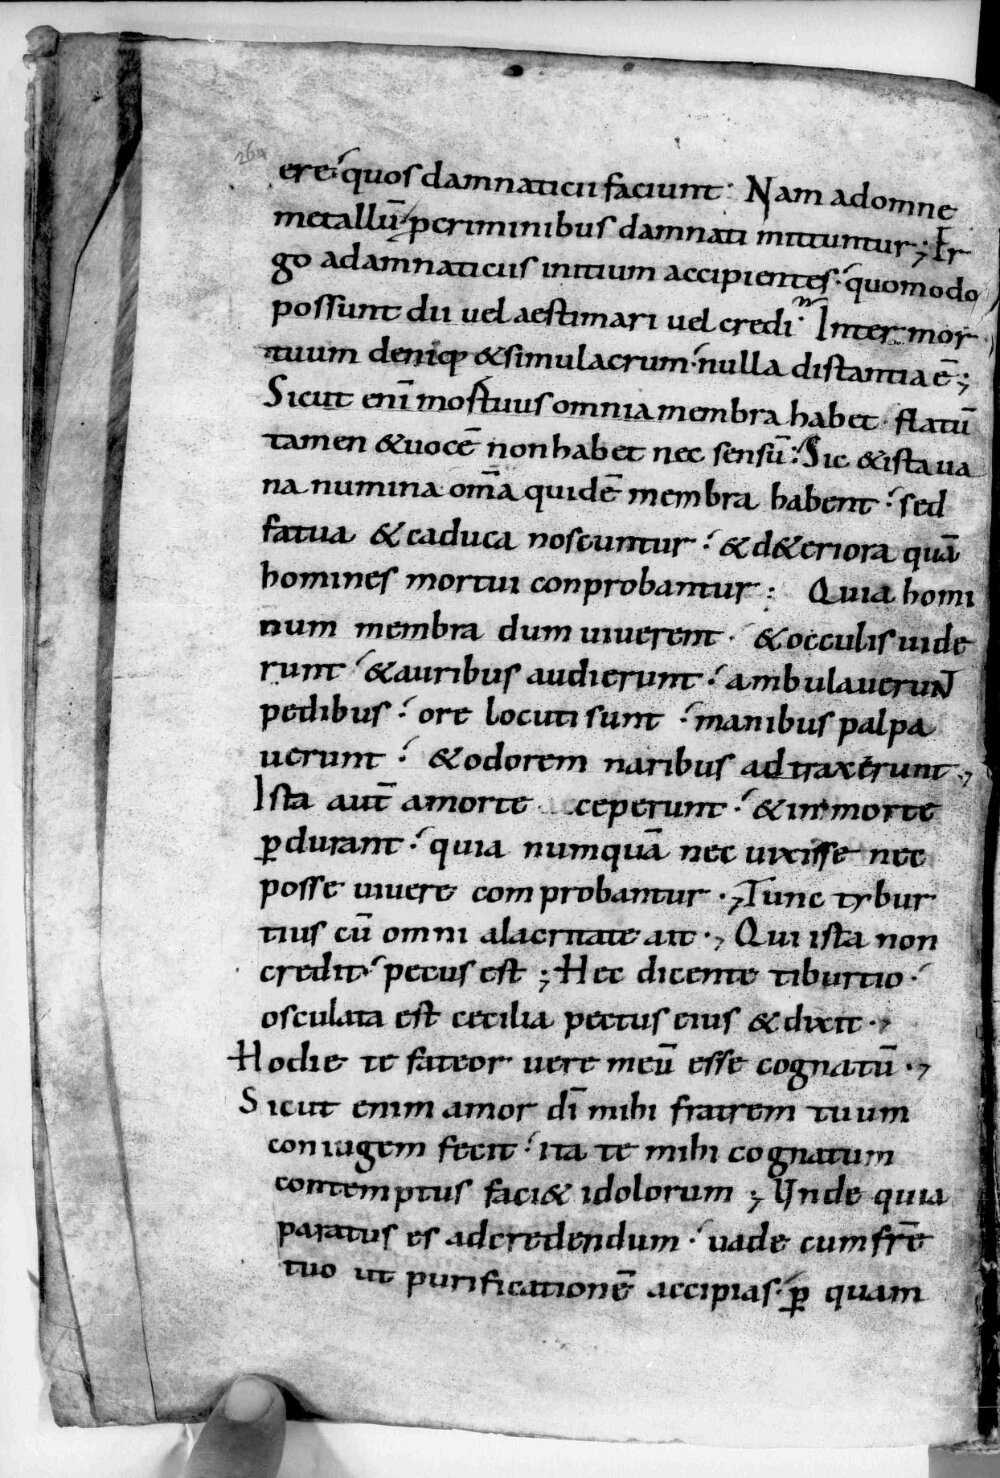 ere quos damnaticii faciunt · Nam ad omne
metallū p criminibus damnati mittuntur ; Er
go a damnaticiis initium accipientes · quomodo
possunt dii vel aestimari vel credi · Inter mor
tuum deniq; & simulacrum · nulla distantia ē ;
Sicut enī mortuus omnia membra habet · flatū
tamen & vocē non habet nec sensū : Sic & ista ua
na numina om̄a quidē membra habent · sed
fatua & caduca noscuntur · & d&eriora quā
homines mortui conprobantur : Quia homi
num membra dum uiuerent · & occulis uide
runt · & auribus audierunt · ambulauerunt
pedibus · ore locuti sunt · manibus palpa
uerunt · & odorem naribus adtraxerunt ·,
Ista aut̄ a morte ceperunt · & in morte
p̱durant · quia numquā nec uixisse nec
posse uiuere comprobantur ·, Tunc tybur
tius cū omni alacritate ait ·, Qui ista non
credit · pecus est ; Hec dicente tiburtio ·
osculata est cecilia pectus eius & dixit ·,
Hodie te fateor vere meū esse cognatū ·,
Sicut enim amor dī mihi fratrem tuum
coniugem fecit · ita te mihi cognatum
contemptus faci& idolorum ; Unde quia
paratus es ad credendum · uade cum fr̄e
tuo ut purificationē accipias · p̱ quam